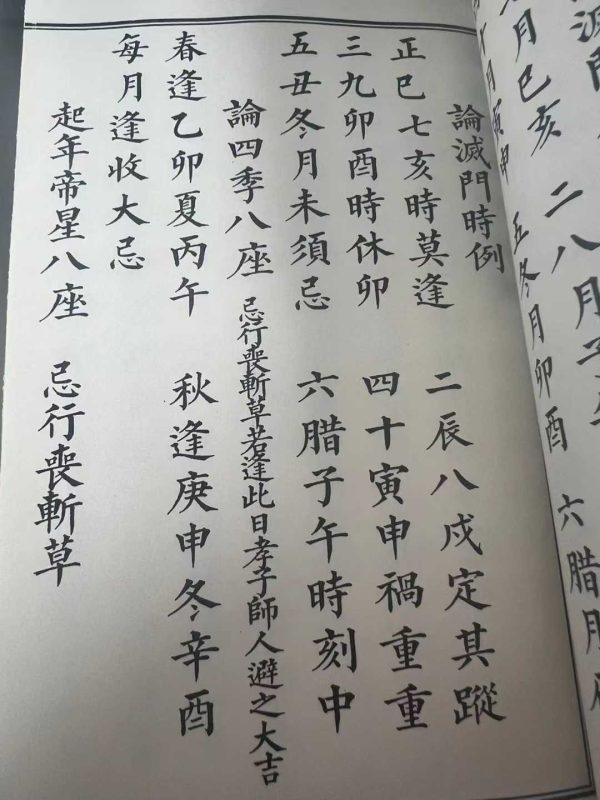 滅門
月巳亥　二八月子
十月寅申　五冬月卯酉　六腊月
論滅門時例
正巳七亥時莫逢　二辰八戌定其蹤
三九卯酉時休卯　四十寅申禍重重
五丑冬月未須忌　六腊子午時刻中
論四季八座　忌行喪斬草若逢此日孝子師人避之大吉
春逢乙卯夏丙午　秋逢庚申冬辛酉
每月逢收大忌
起年帝星八座　忌行喪斬草